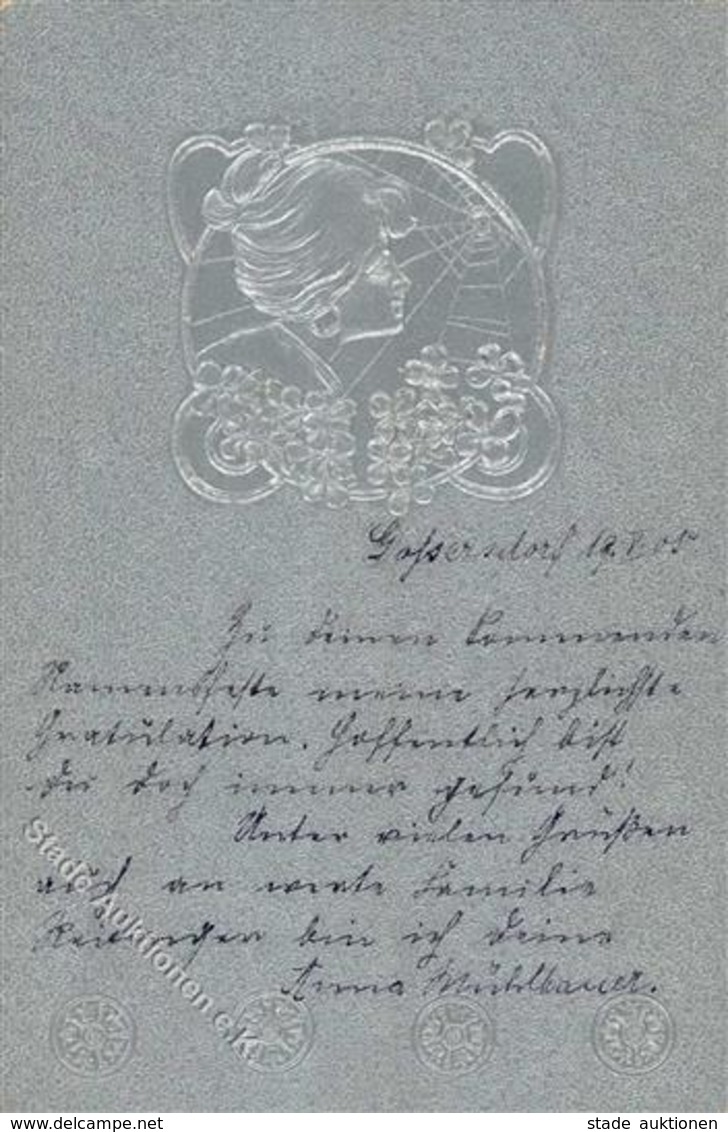 Gossersdorf 19.V.05
Zu deinem kommenden
Namensfeste meine herzlichste
Gratulation. Hoffentlich bist
du doch immer gesund!
Unter vielen Grüßen
auch an werte Familie
bin ich deine
Anna Mühlbauer.
Stade Auktionen e.K.
www.delcampe.net
stade auktionen